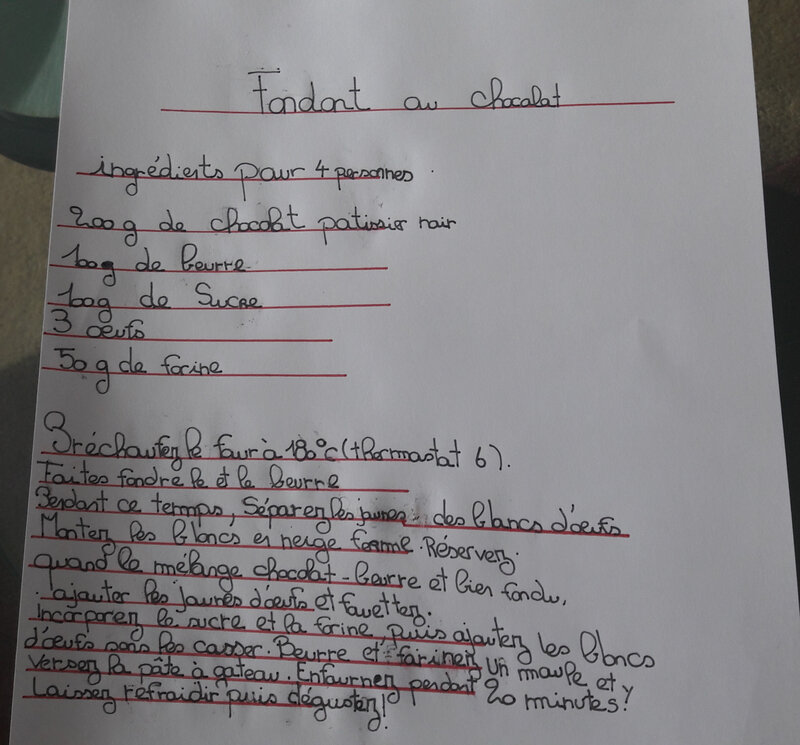 Fondant au chocolat
ingrédients pour 4 personnes
200g de chocolat patissier noir
100g de beurre
100g de sucre
3 oeufs
50g de farine
Préchauffez le four à 180°C (thermostat 6).
Faites fondre le et le beurre
Pendant ce temps, Séparez les jaunes des blancs d'oeufs
Montez les blancs en neige ferme. Réservez.
quand le mélange chocolat-beurre et bien fondu,
ajouter les jaunes d'oeufs et fouettez.
Incorporez le sucre et la farine, puis ajoutez les blancs
d'oeufs sans les casser. Beurre et farinez un moule et y
versez la pâte à gateau. Enfournez pendant 20 minutes!
Laissez refroidir puis dégustez!